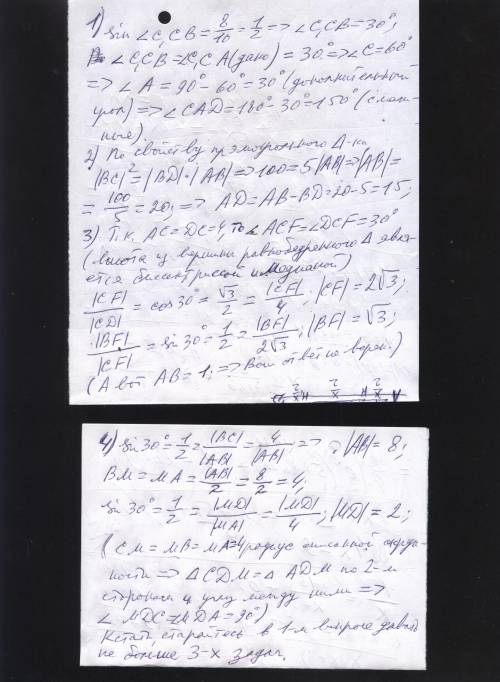 1) sin ∠C₁CB = 8/16 = 1/2 => ∠C₁CB = 30°;
∠C₁CB = ∠C₁CA (дано) = 30° => ∠C = 60°
=> ∠A = 90° - 60° = 30° (дополнительный
угол) => ∠CAD = 180° - 30° = 150° (смеж-
ные)
2) По свойству прямоугольного Δ-ка
|BC|² = |BD|·|AB| => 100 = 5|AB| => |AB| =
= 100/5 = 20; => AD = AB - BD = 20 - 5 = 15;
3) Т.к. AC = DC = 4, то ∠ACF = ∠DCF = 30°
(высота из вершины равнобедренного Δ явля-
ется биссектрисой и медианой)
|CF|/|CD| = cos 30° = √3/2 = |CF|/4. |CF| = 2√3;
|BF|/|CF| = sin 30° = 1/2 = |BF|/2√3; |BF| = √3;
(А вот AB = 1; => Ваш ответ не верен.)
4) sin 30° = 1/2 = |BC|/|AB| = 4/|AB| => |AB| = 8;
BM = MA = |AB|/2 = 8/2 = 4;
sin 30° = 1/2 = |MD|/|MA| = |MD|/4; |MD| = 2;
(CM = MB = MA = 4 радиус описанной окруж-
ности => ΔCDM = ΔADM по 2-м
сторонам и углу между ними =>
∠MDC = ∠MDA = 90°)
Кстати, старайтесь в 1-м вопросе давать
не больше 3-х задач.